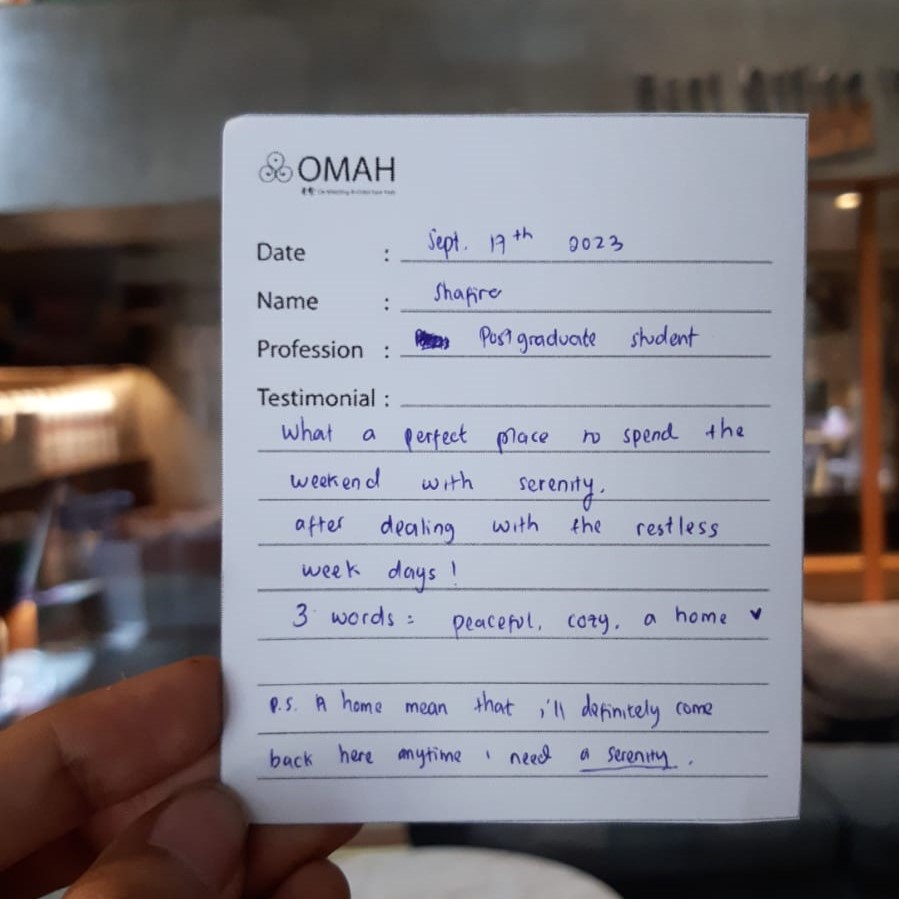 OMAH
Date : Sept. 17th 2023
Name : Shafira
Profession : Postgraduate student
Testimonial :
What a perfect place to spend the
weekend with serenity.
after dealing with the restless
week days !
3 words : peaceful, cozy, a home ♥
P.S. A home mean that i'll definitely come
back here anytime i need a serenity.